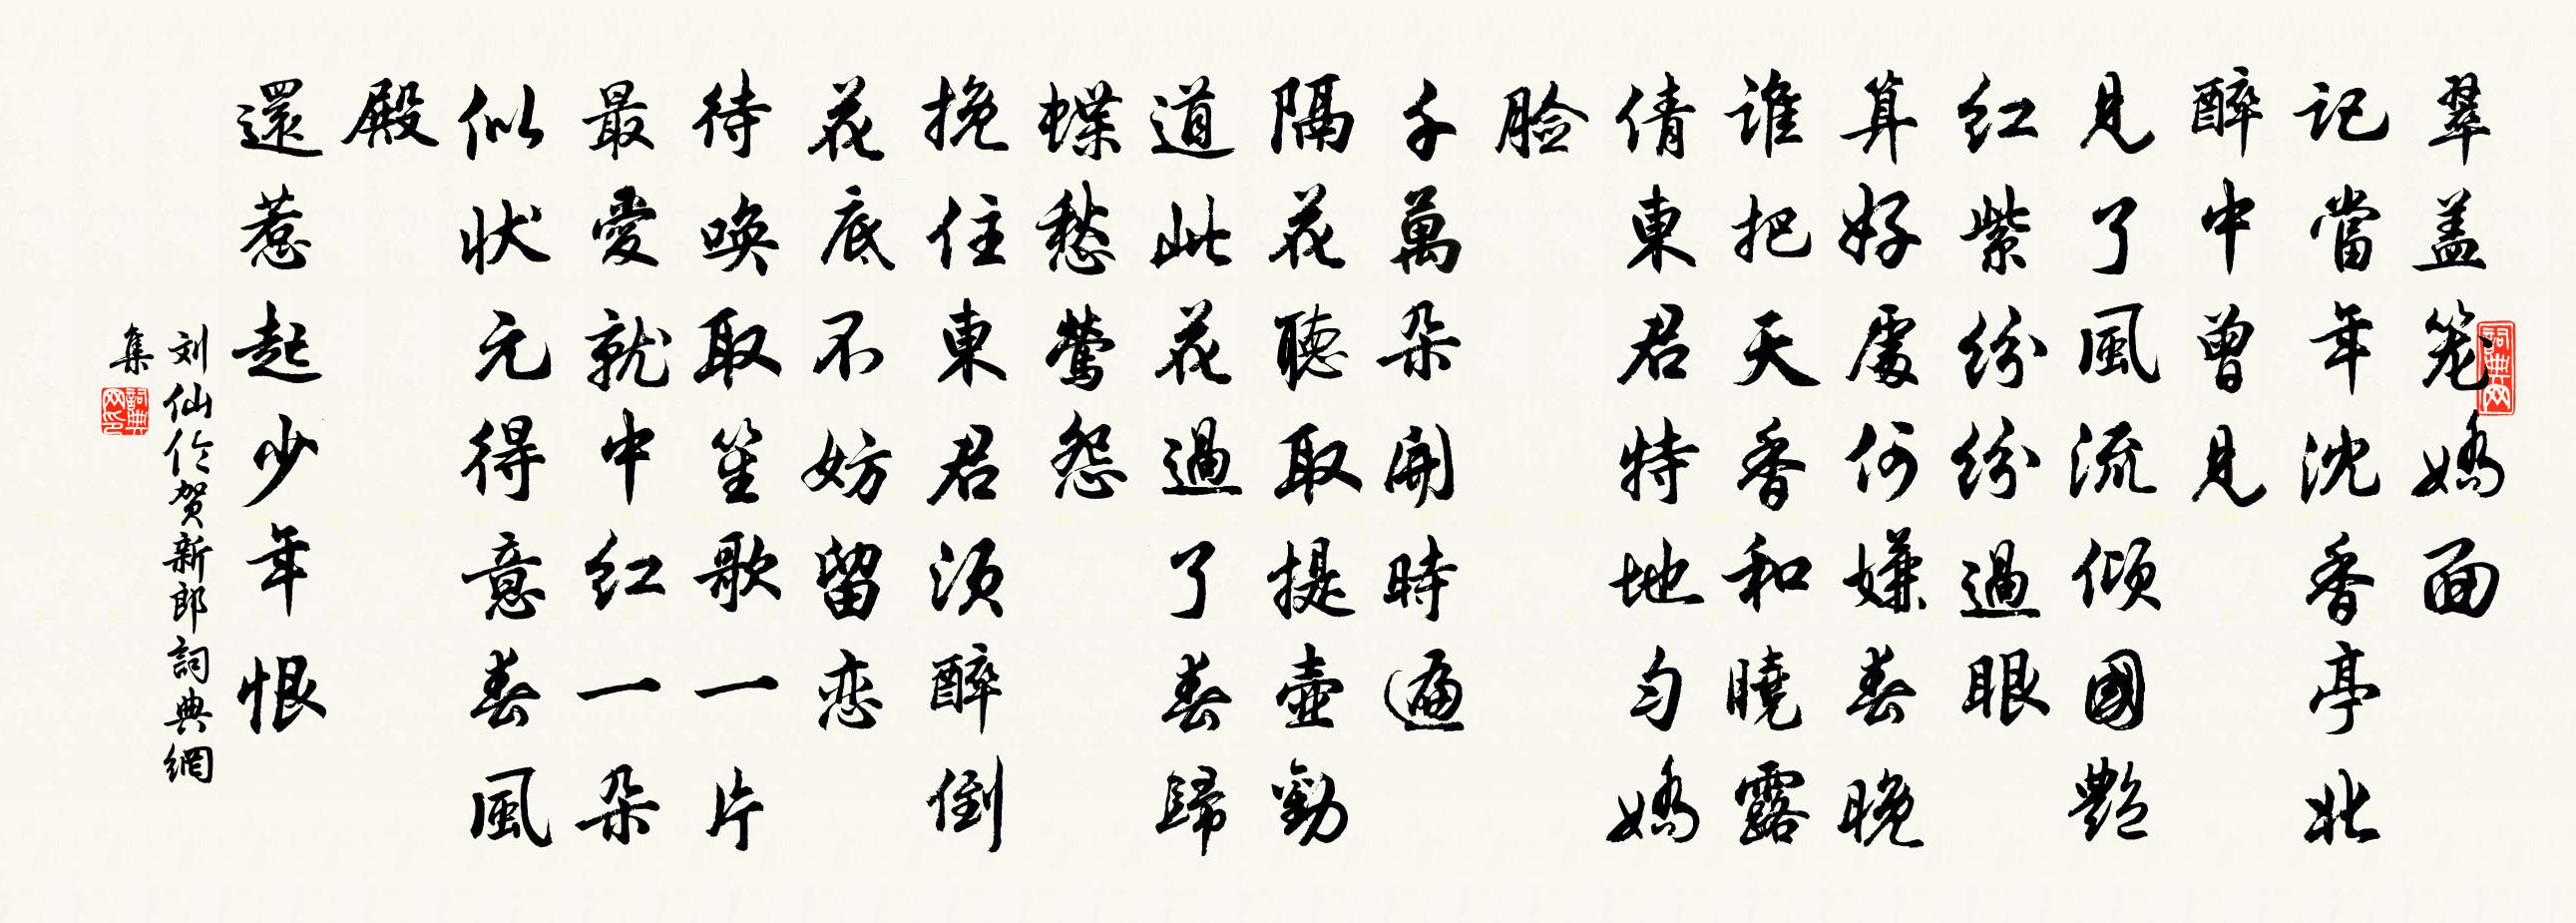 翠盖笼嬌面
記當年沈香亭北
醉中曾見
見了風流倾國艷
红紫纷纷過眼
算好處何嫌春晚
谁把天香和曉露
倩東君特地匀嬌
脸
千萬朵開時遍
隔花聽取提壺勸
道此花過了春歸
蝶愁鶯怨
挽住東君须醉倒
花底不妨留恋
待唤取笙歌一片
最愛就中红一朵
似状元得意春風
殿
還惹起少年恨
刘仙伦贺新郎詞典網
集
詞典网
詞典网印